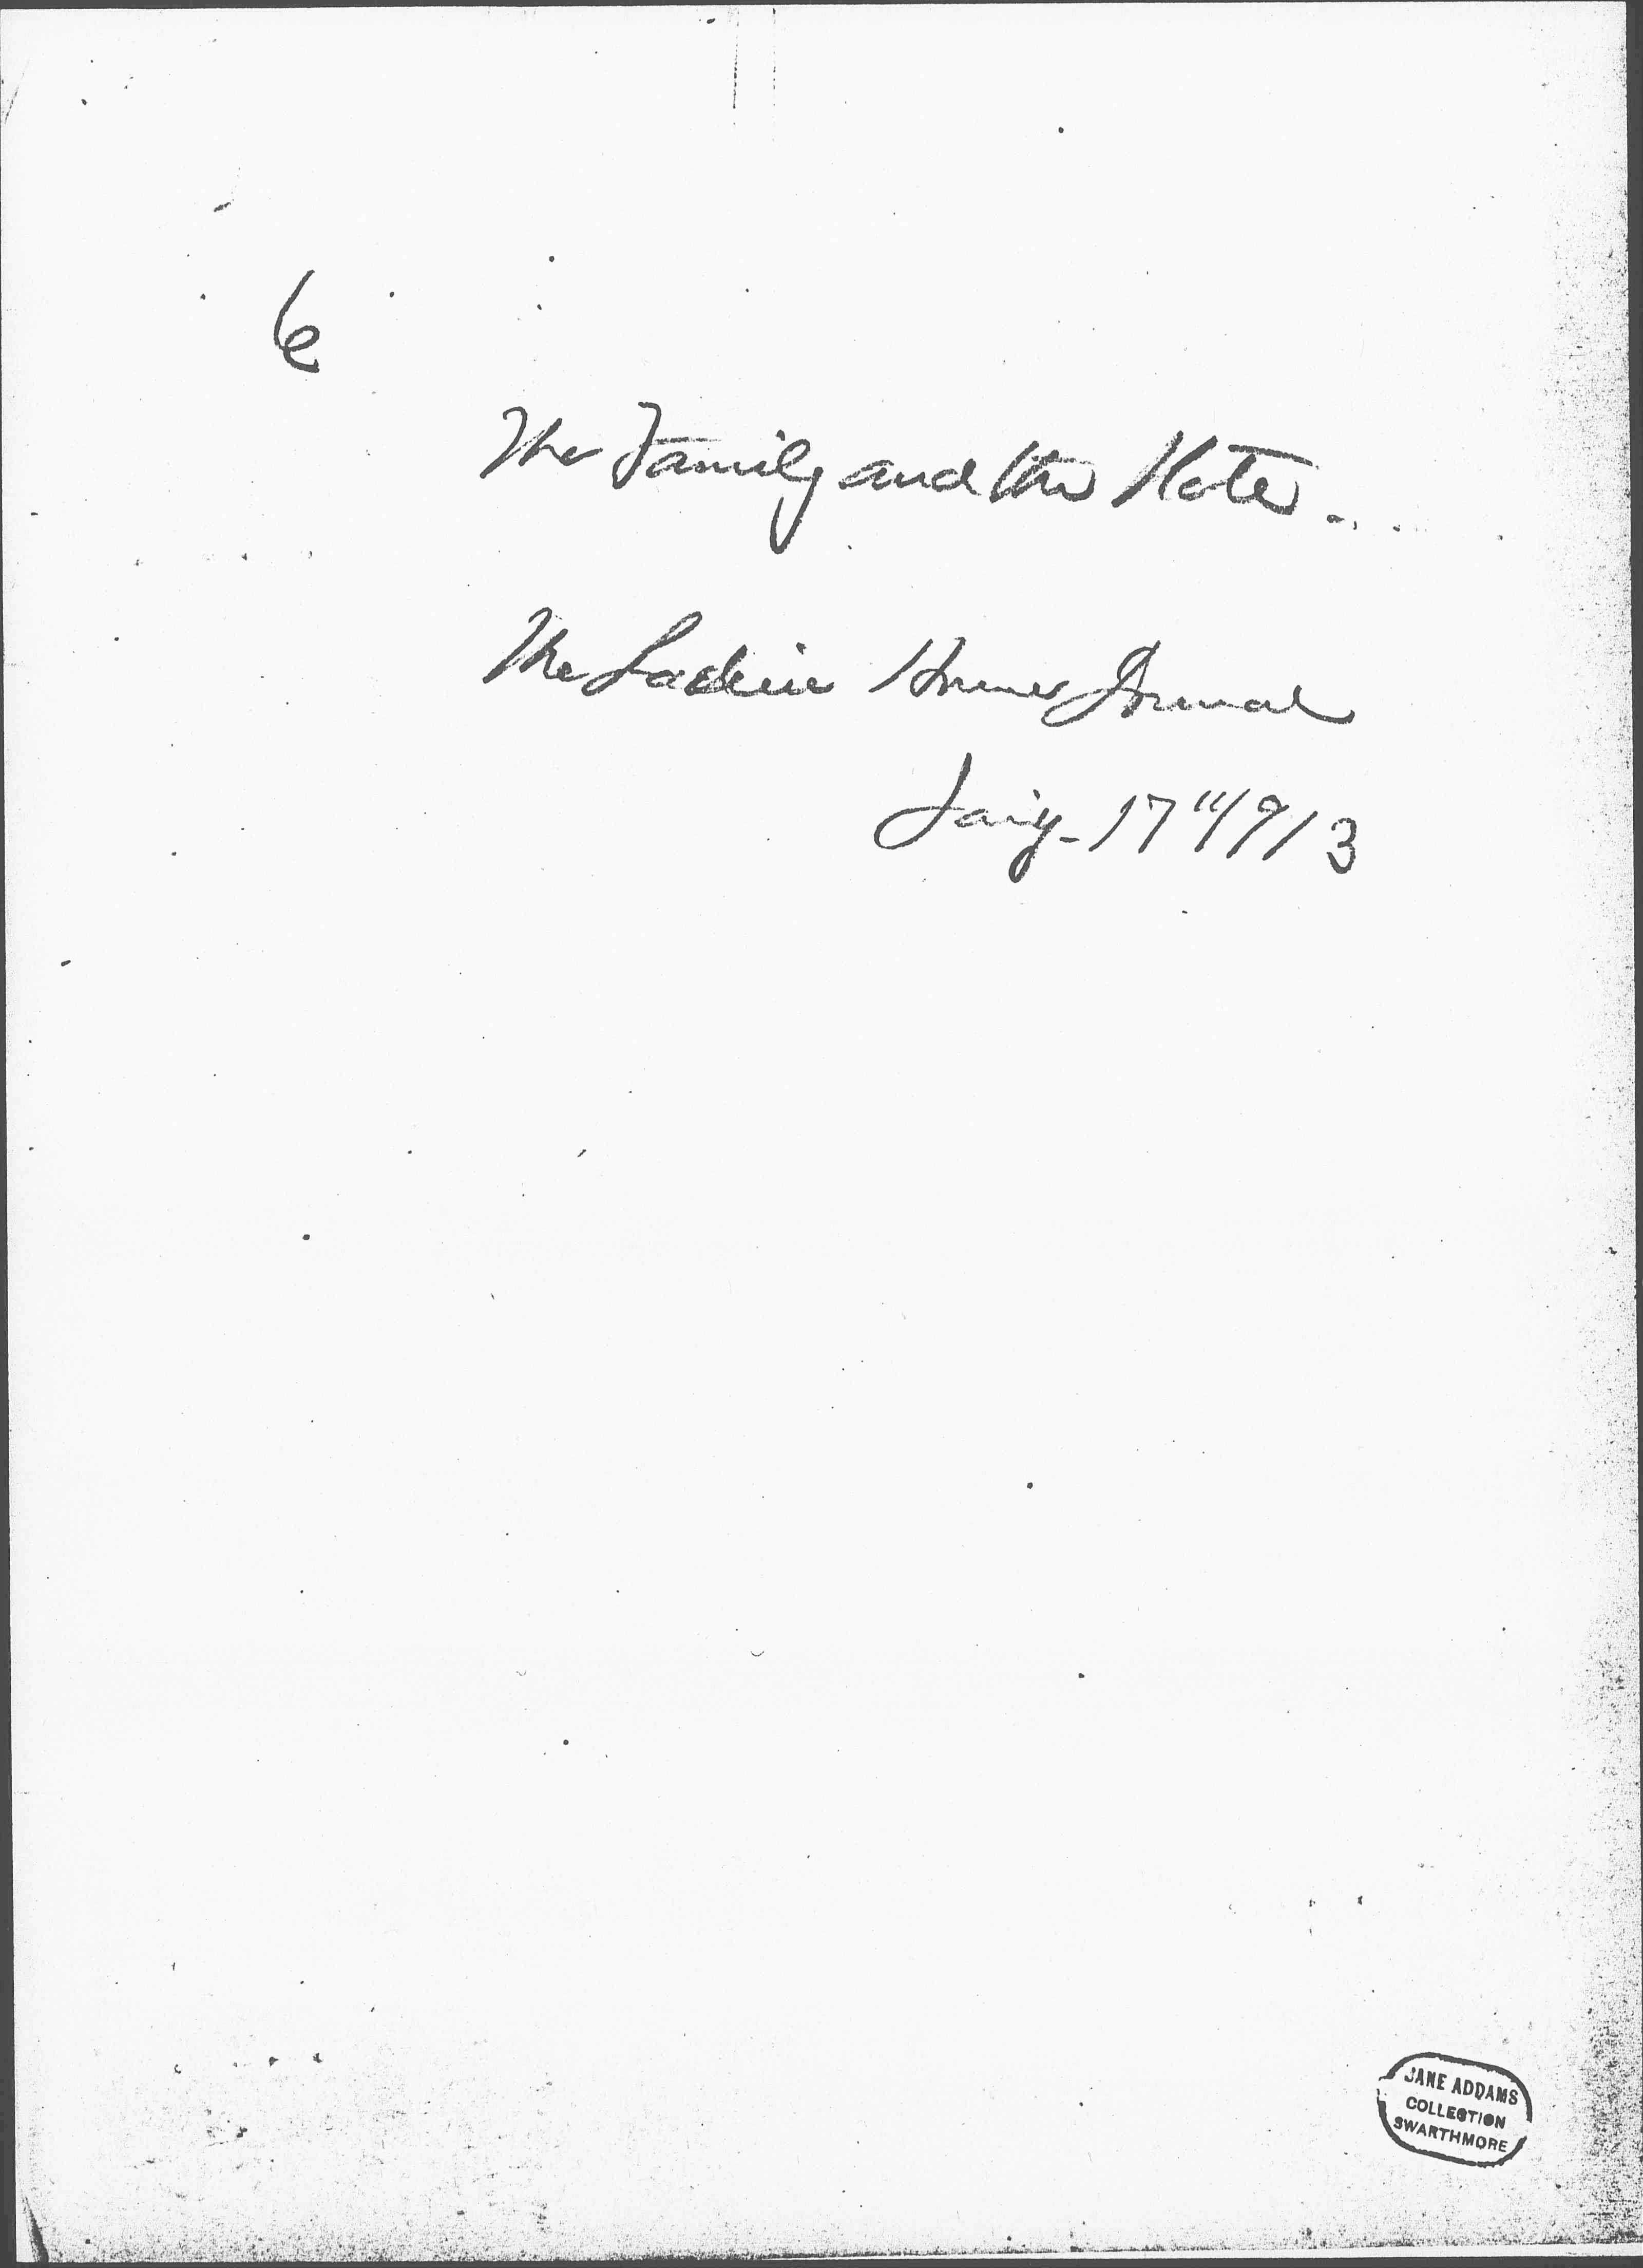 6
The Family and the State.
The Ladies Homes Journal
Jan'y - 17" 1913
JANE ADDAMS
COLLECTION
SWARTHMORE